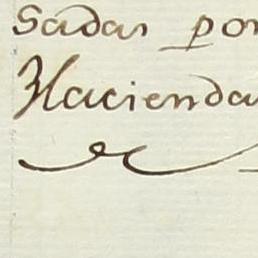 sadas por
Hacienda